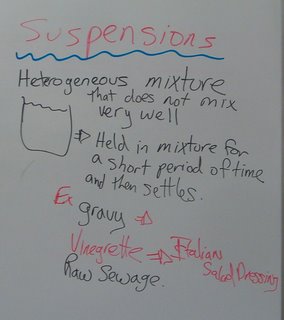 Suspensions
Heterogeneous mixture
that does not mix
very well
⇒ Held in mixture for
a short period of time
and then settles.
Ex gravy ⇒
Vinegrette ⇒ Italian
Salad Dressing
Raw Sewage.